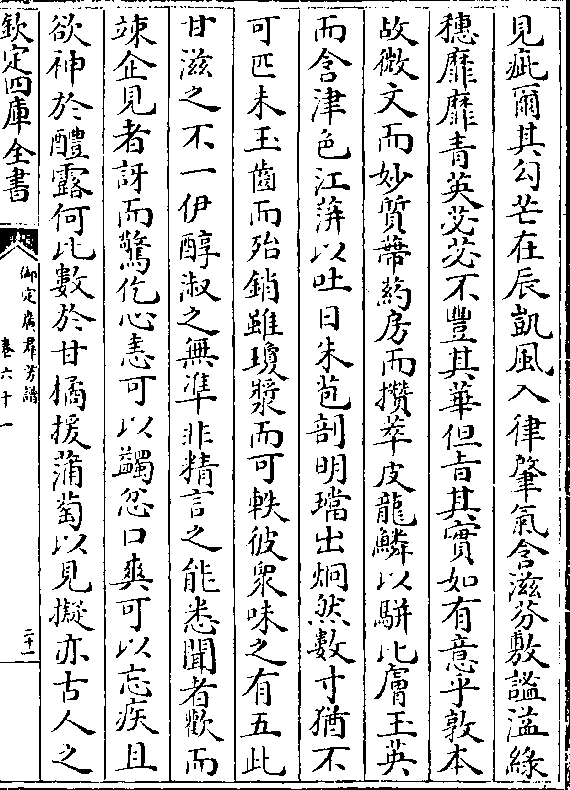 見疵爾其勾芒在辰凱風入律肇氣含滋芬敷謐溢緣
穗靡靡青英苾苾不豐其華但㫖其實如有意乎敦本
故微文而妙質蔕葯房而攢萃皮龍鱗以駢比膚玉英
而含津色江萍以吐日朱苞剖明璫出烱然數寸猶不
可匹未玉齒而殆銷雖瓊漿而可軼彼衆味之有五此
甘滋之不一伊醇淑之無凖非精言之能悉聞者歡而
竦企見者訝而驚仡心恚可以蠲忿口爽可以忘疾且
欲神於醴露何比數於甘橘援蒲萄以見擬亦古人之
欽定四庫全書
御定廣羣芳譜
卷六十一
二十一